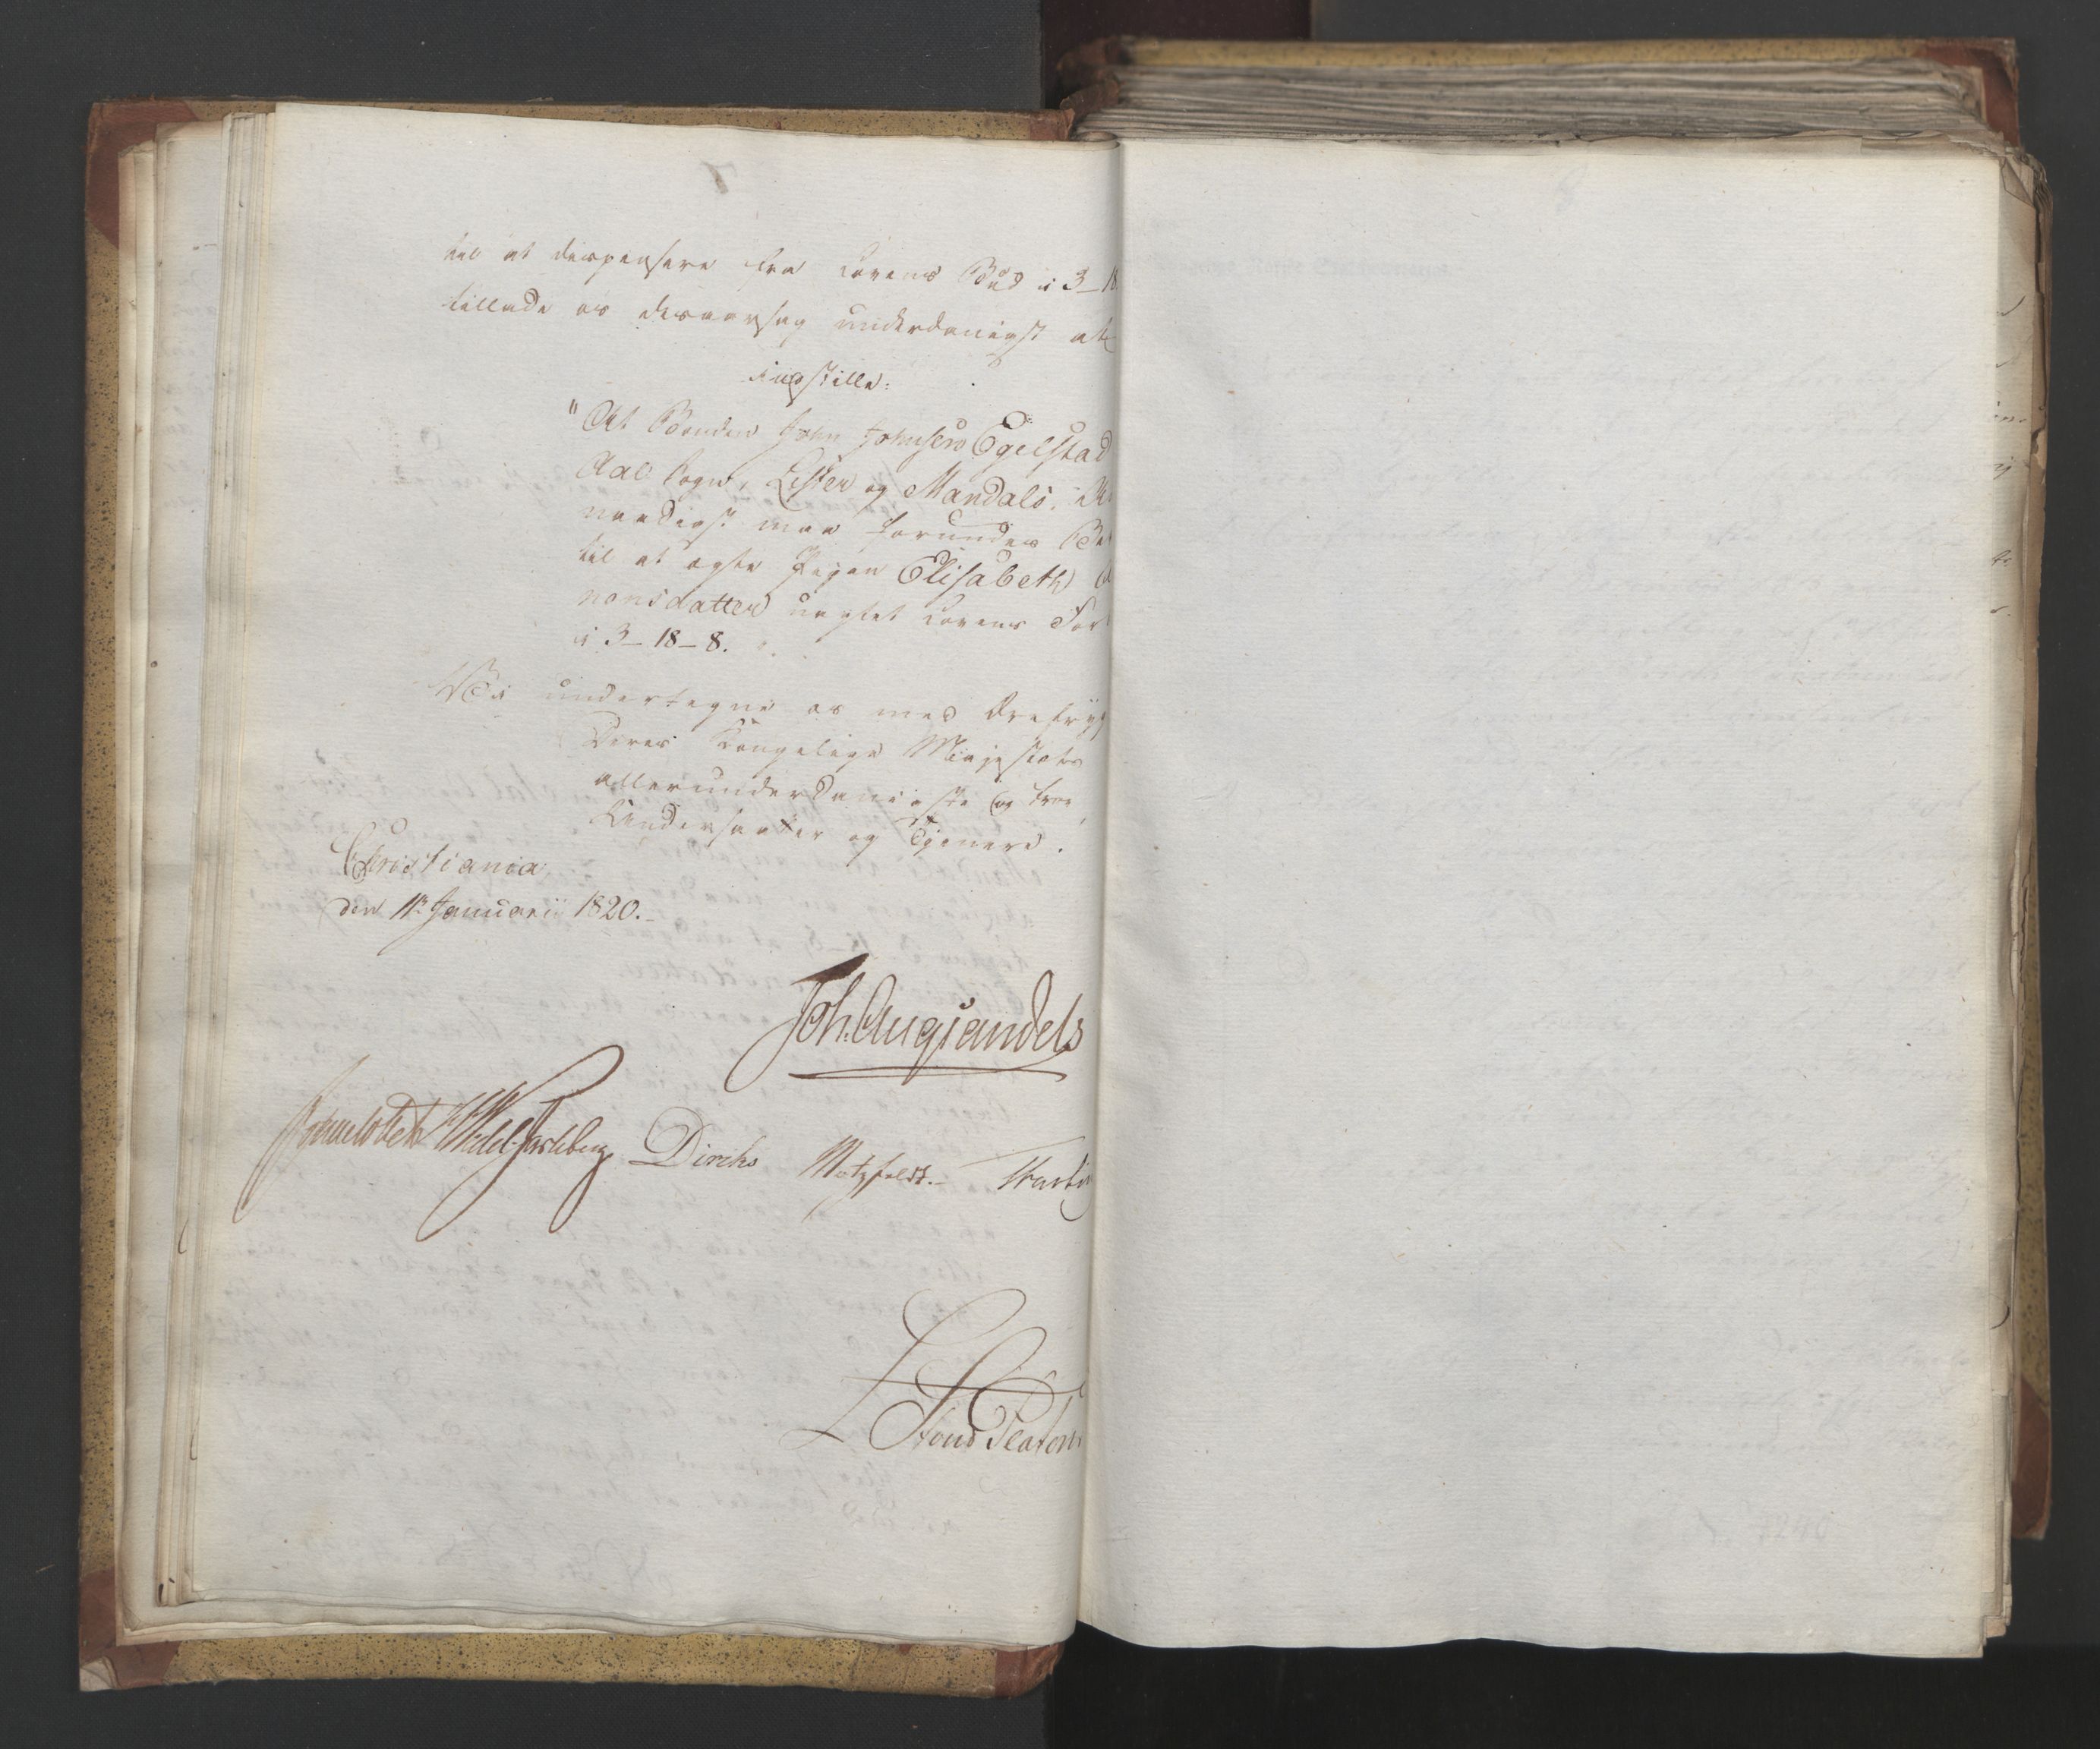 til at dispensere fra Lovens Bud i 3-18
tillade os desaarsag underdanigst at
indstille:
"At Bonden John Johnsen Egelstad
Aal Sogn, Lister og Mandals,
naadigst maa forundes
til at ægte Pigen Elisabeth
nonsdatter uagtet Lovens For
i 3-18-8.
Vi undertegne os med Ærefrygt
Deres Kongelige Majestæts
allerunderdanigste og troe
Undersaatter og Tjenere.
Christiania,
den 11te Januarii 1820.-
Joh. Aug Sandels
Sommerhielm HWedel Jarlsberg Diriks Motzfeldt.-
LStoud Platou